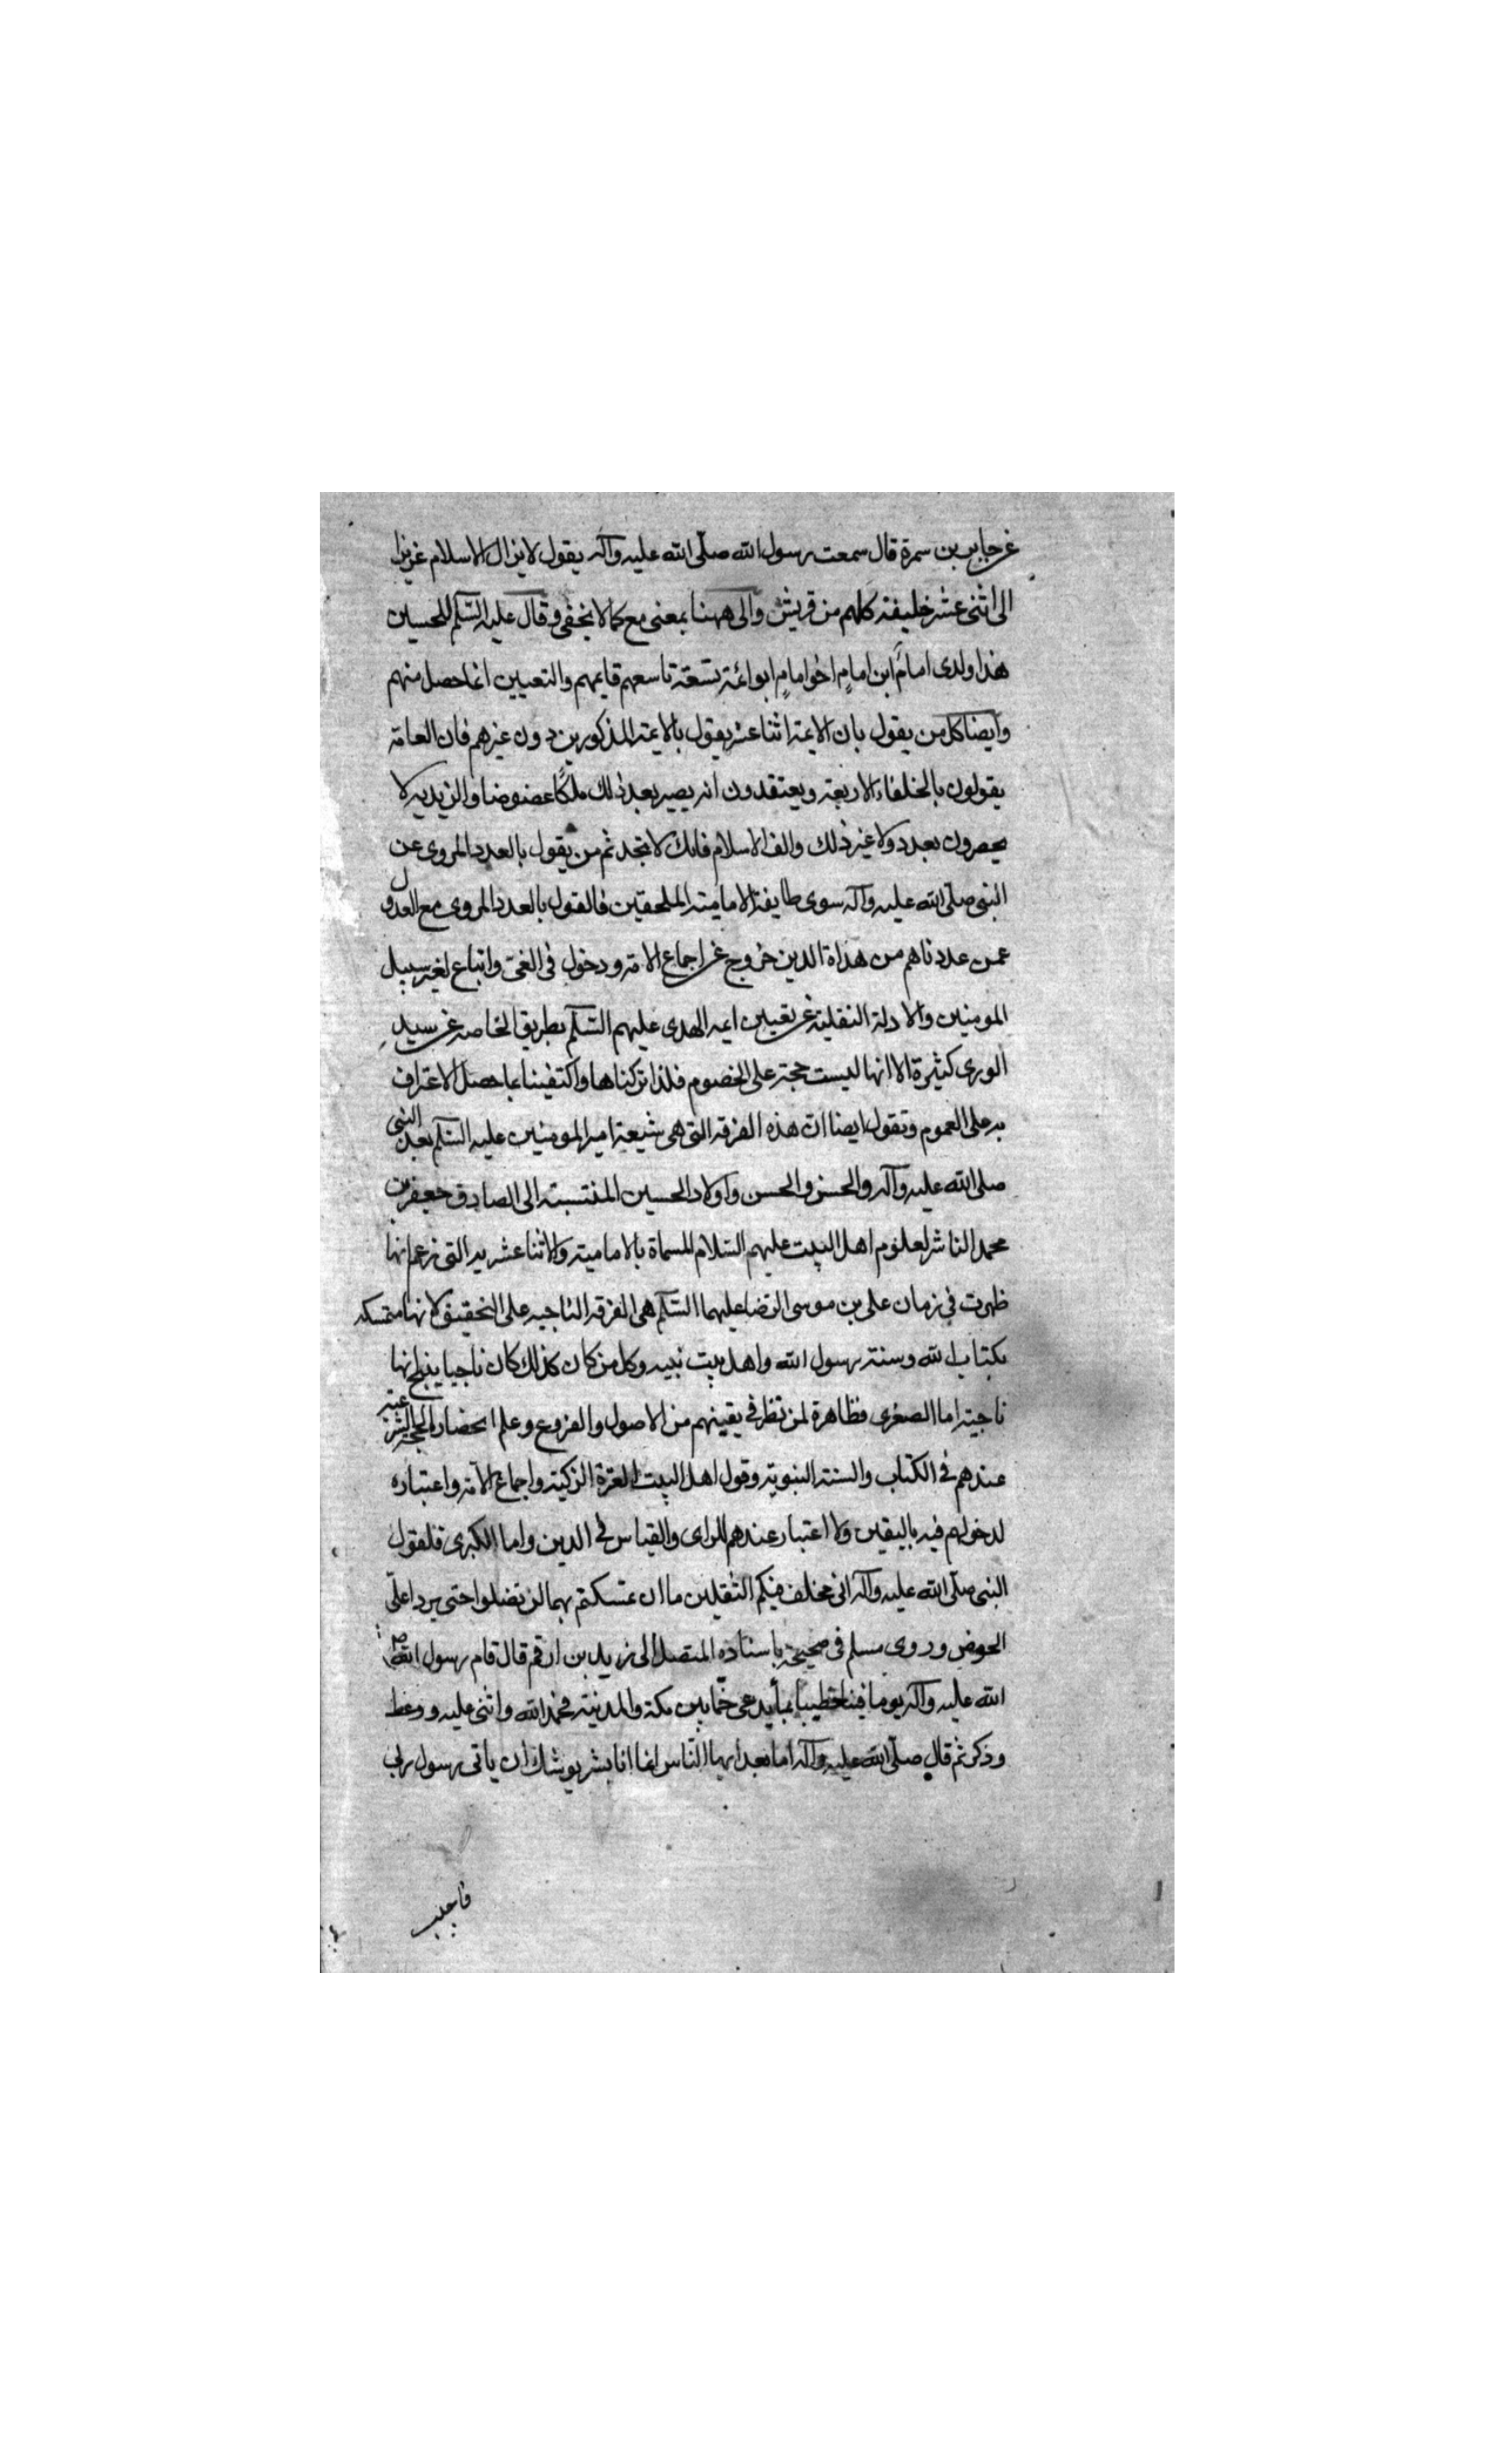 عن جابر بن سمرة قال سمعت رسول الله صلّى الله عليه وآله يقول لا يزال الاسلام عزيزا
الى اثنى عشر خليفة كلهم من قريش والى ههنا بمعنى مع كما لا يخفى وقال عليه السّلم للحسين
هذا ولدى امامٌ ابن امامٍ اخو امامٍ ابو ائمة تسعة تاسعهم قايمهم والتعيين انما حصل منهم
وايضا كل من يقول بان الايمة اثنا عشر يقول بالايمة المذكورين دون غيرهم فان العامة
يقولون بالخلفاء الاربعة ويعتقدون انه يصير بعد ذلك ملكًا عضوضا والزيدية لا
يحصرون بعدد ولا غير ذلك والف الاسلام فانك لا تجد ثم من يقول بالعدد المروى عن
النبى صلّى الله عليه وآله سوى طايفة الامامية الملحقين فالقول بالعدد المروى مع العدول
عمن عددناهم من هداة الدين خروج عن اجماع الامة ودخول فى الغى واتباع لغير سبيل
المومنين والادلة النقلية عن تعيين ايمة الهدى عليهم السّلم بطريق الخاصة عن سيد
الورى كثيرة الا انها ليست حجة على الخصوم فلذا تركناها واكتفينا بما حصل الاعتراف
به على العموم ونقول ايضا ان هذه الفرقة التى هى شيعة امير المومنين عليه السّلم بعد النبى
صلى الله عليه وآله والحسن والحسين واولاد الحسين المنتسبة الى الصادق جعفر بن
محمد الناشر لعلوم اهل البيت عليهم السّلام المسماة بالامامية والاثنا عشرية التى زعم انها
ظهرت فى زمان على بن موسى الرضا عليهما السّلم هى الفرقة الناجية على التحقيق لانها متمسكة
بكتاب الله وسنة رسول الله واهل بيت نبيه وكل من كان كذلك كان ناجيا ينتج انها
ناجية اما الصغرى فظاهرة لمن نظر فى يقينهم من الاصول والفروع وعلم انحصار الحجة الشرعية
عندهم فى الكتاب والسنة النبوية وقول اهل البيت العترة الزكية واجماع الامة واعتباره
لدخولهم فيه باليقين ولا اعتبار عندهم للراى والقياس فى الدين واما الكبرى فلقول
النبى صلّى الله عليه وآله انى مخلف فيكم الثقلين ما ان تمسكتم بهما لن تضلوا حتى يردا علىّ
الحوض وروى مسلم فى صحيحه باسناده المتصل الى زيد بن ارقم قال قام رسول الله ص
الله عليه وآله يوما فينا خطيبا بماء يدعى خمّا بين مكة والمدينة فحمد الله واثنى عليه ووعظ
وذكر ثم قال صلّى الله عليه وآله اما بعد ايها النّاس انما انا بشر يوشك ان ياتى رسول ربى
فاجيب